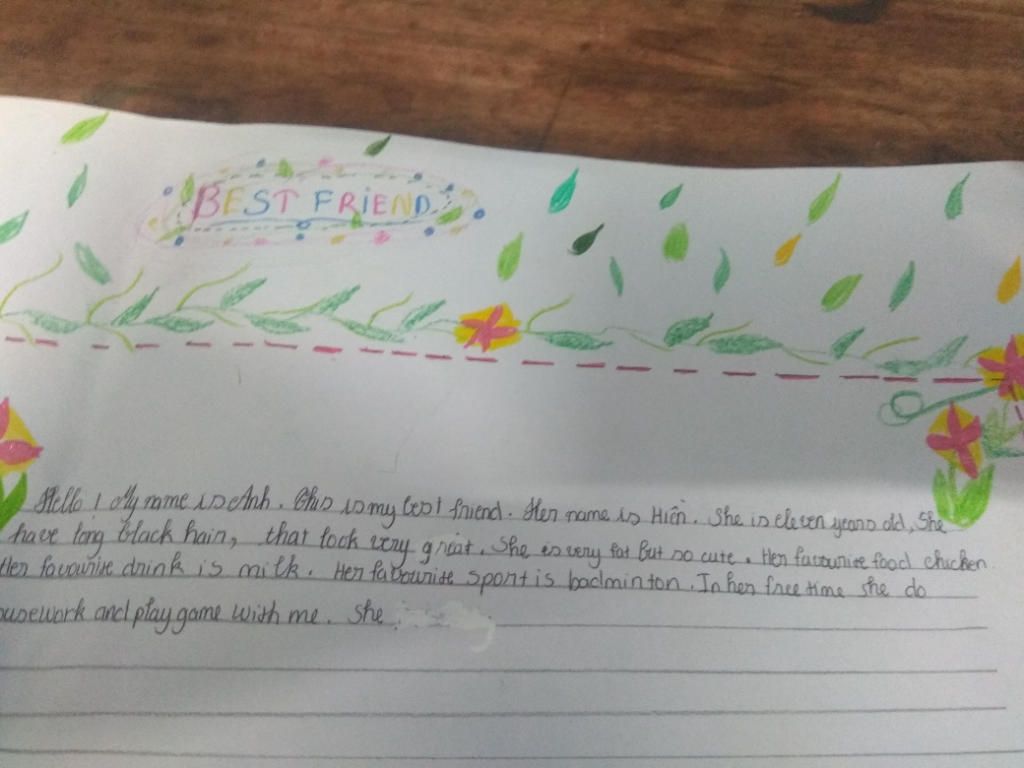 BEST FRIEND
Hello! My name is Anh. This is my best friend. Her name is Hiền. She is eleven years old, She
have long black hair, that look very great. She is very fat But so cute. Her favourite food chicken.
Her favourite drink is milk. Her favourite sport is badminton. In her free time she do
ousework and play game with me. She